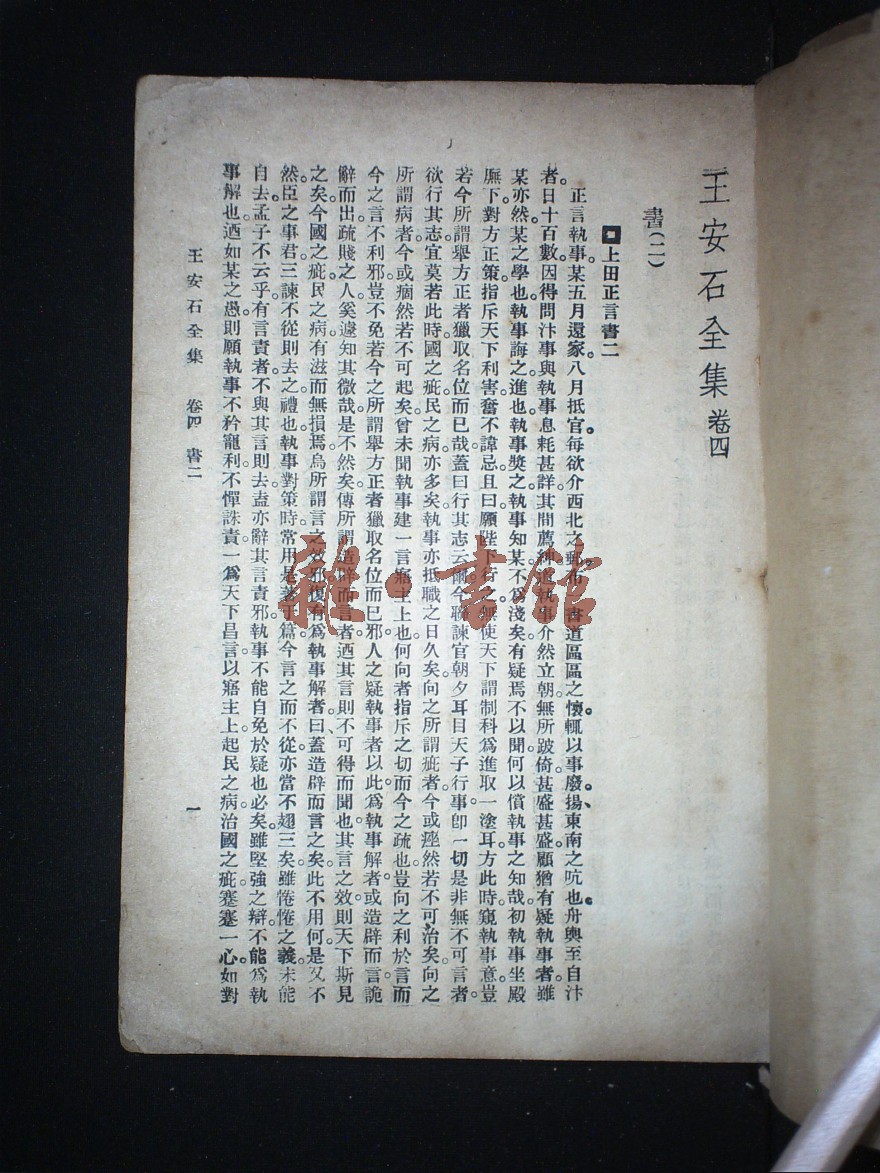 王安石全集 卷四
書(二)
上田正言書二
正言執事。某五月還家。八月抵官。每欲介西北之郵布一書道區區之懷。輒以事廢。揚東南之吭也。舟輿至自汴
者。日十百數。因得問汴事與執事息耗甚詳。其間薦紳道執事介然立朝。無所跛倚。甚盛甚盛。顧猶有疑執事者。雖
某亦然。某之學也。執事誨之。進也。執事獎之。執事知某不爲淺矣。有疑焉不以聞。何以償執事之知哉。初執事坐殿
廡下。對方正策。指斥天下利害。奮不諱忌。且曰。願陛下行之。無使天下謂制科爲進取一塗耳。方此時。窺執事意。豈
若今所謂舉方正者獵取名位而已哉。蓋曰行其志云爾。今聯諫官朝夕耳目天子行事。卽一切是非無不可言者。
欲行其志。宜莫若此時。國之疵。民之病。亦多矣。執事亦抵職之日久矣。向之所謂疵者。今或痤然若不可治矣。向之
所謂病者。今或痼然若不可起矣。曾未聞執事建一言寤主上也。何向者指斥之切而今之疏也。豈向之利於言而
今之言不利邪。豈不免若今之所謂舉方正者獵取名位而已邪。人之疑執事者以此。爲執事解者。或造辟而言。詭
辭而出。疏賤之人。奚遽知其微哉。是不然矣。傳所謂造辟而言者。迺其言則不可得而聞也。其言之效。則天下斯見
之矣。今國之疵。民之病。有滋而無損焉。烏所謂言之效邪。復有爲執事解者。曰、蓋造辟而言之矣。此不用何。是又不
然。臣之事君。三諫不從則去之。禮也。執事對策時常用是著于篇。今言之而不從。亦當不翅三矣。雖惓惓之義。未能
自去。孟子不云乎。有言責者。不與其言則去。盍亦辭其言責邪。執事不能自免於疑也必矣。雖堅強之辯。不能爲執
事解也。迺如某之愚。則願執事不矜寵利。不憚誅責。一爲天下昌言。以寤主上。起民之病。治國之疵。蹇蹇一心。如對
王安石全集 卷四 書二
一
雜·書館